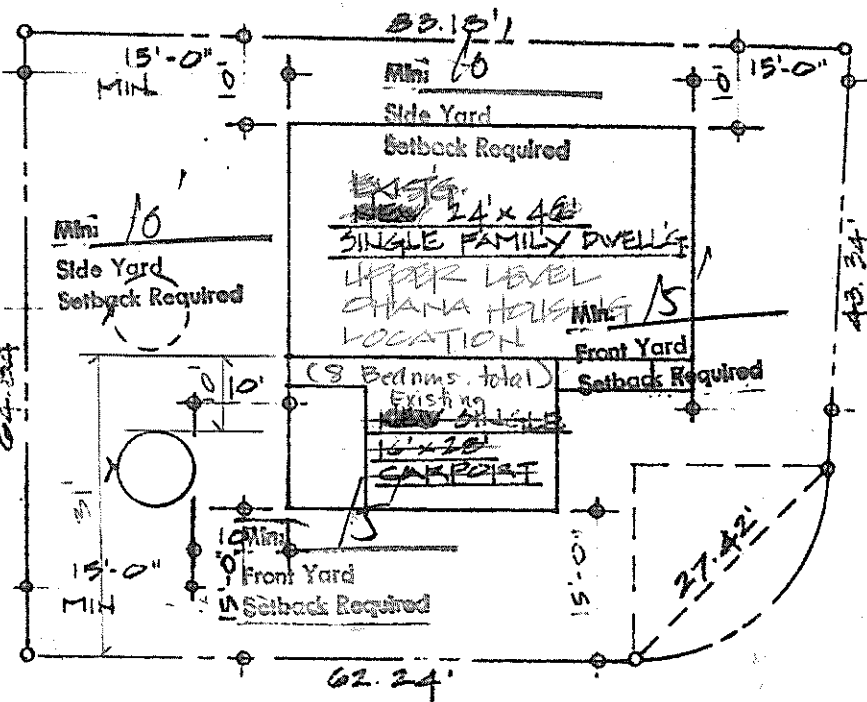 83.13'
15'-0"
MIN.
Mini 10
Side Yard
Setback Required
15'-0"
EXIST'G.
24' x 48'
SINGLE FAMILY DWELL'G
UPPER LEVEL
OHANA HOUSING
LOCATION
Mini 10'
Side Yard
Setback Required
Min. 15'
Front Yard
Setback Required
43.34'
(8 Bedrms. total)
Existing
SINGLE
CARPORT
10'
31'
15'-0"
MIN
Mini 15
Front Yard
Setback Required
15'-0"
15'-0"
27.42'
62.24'